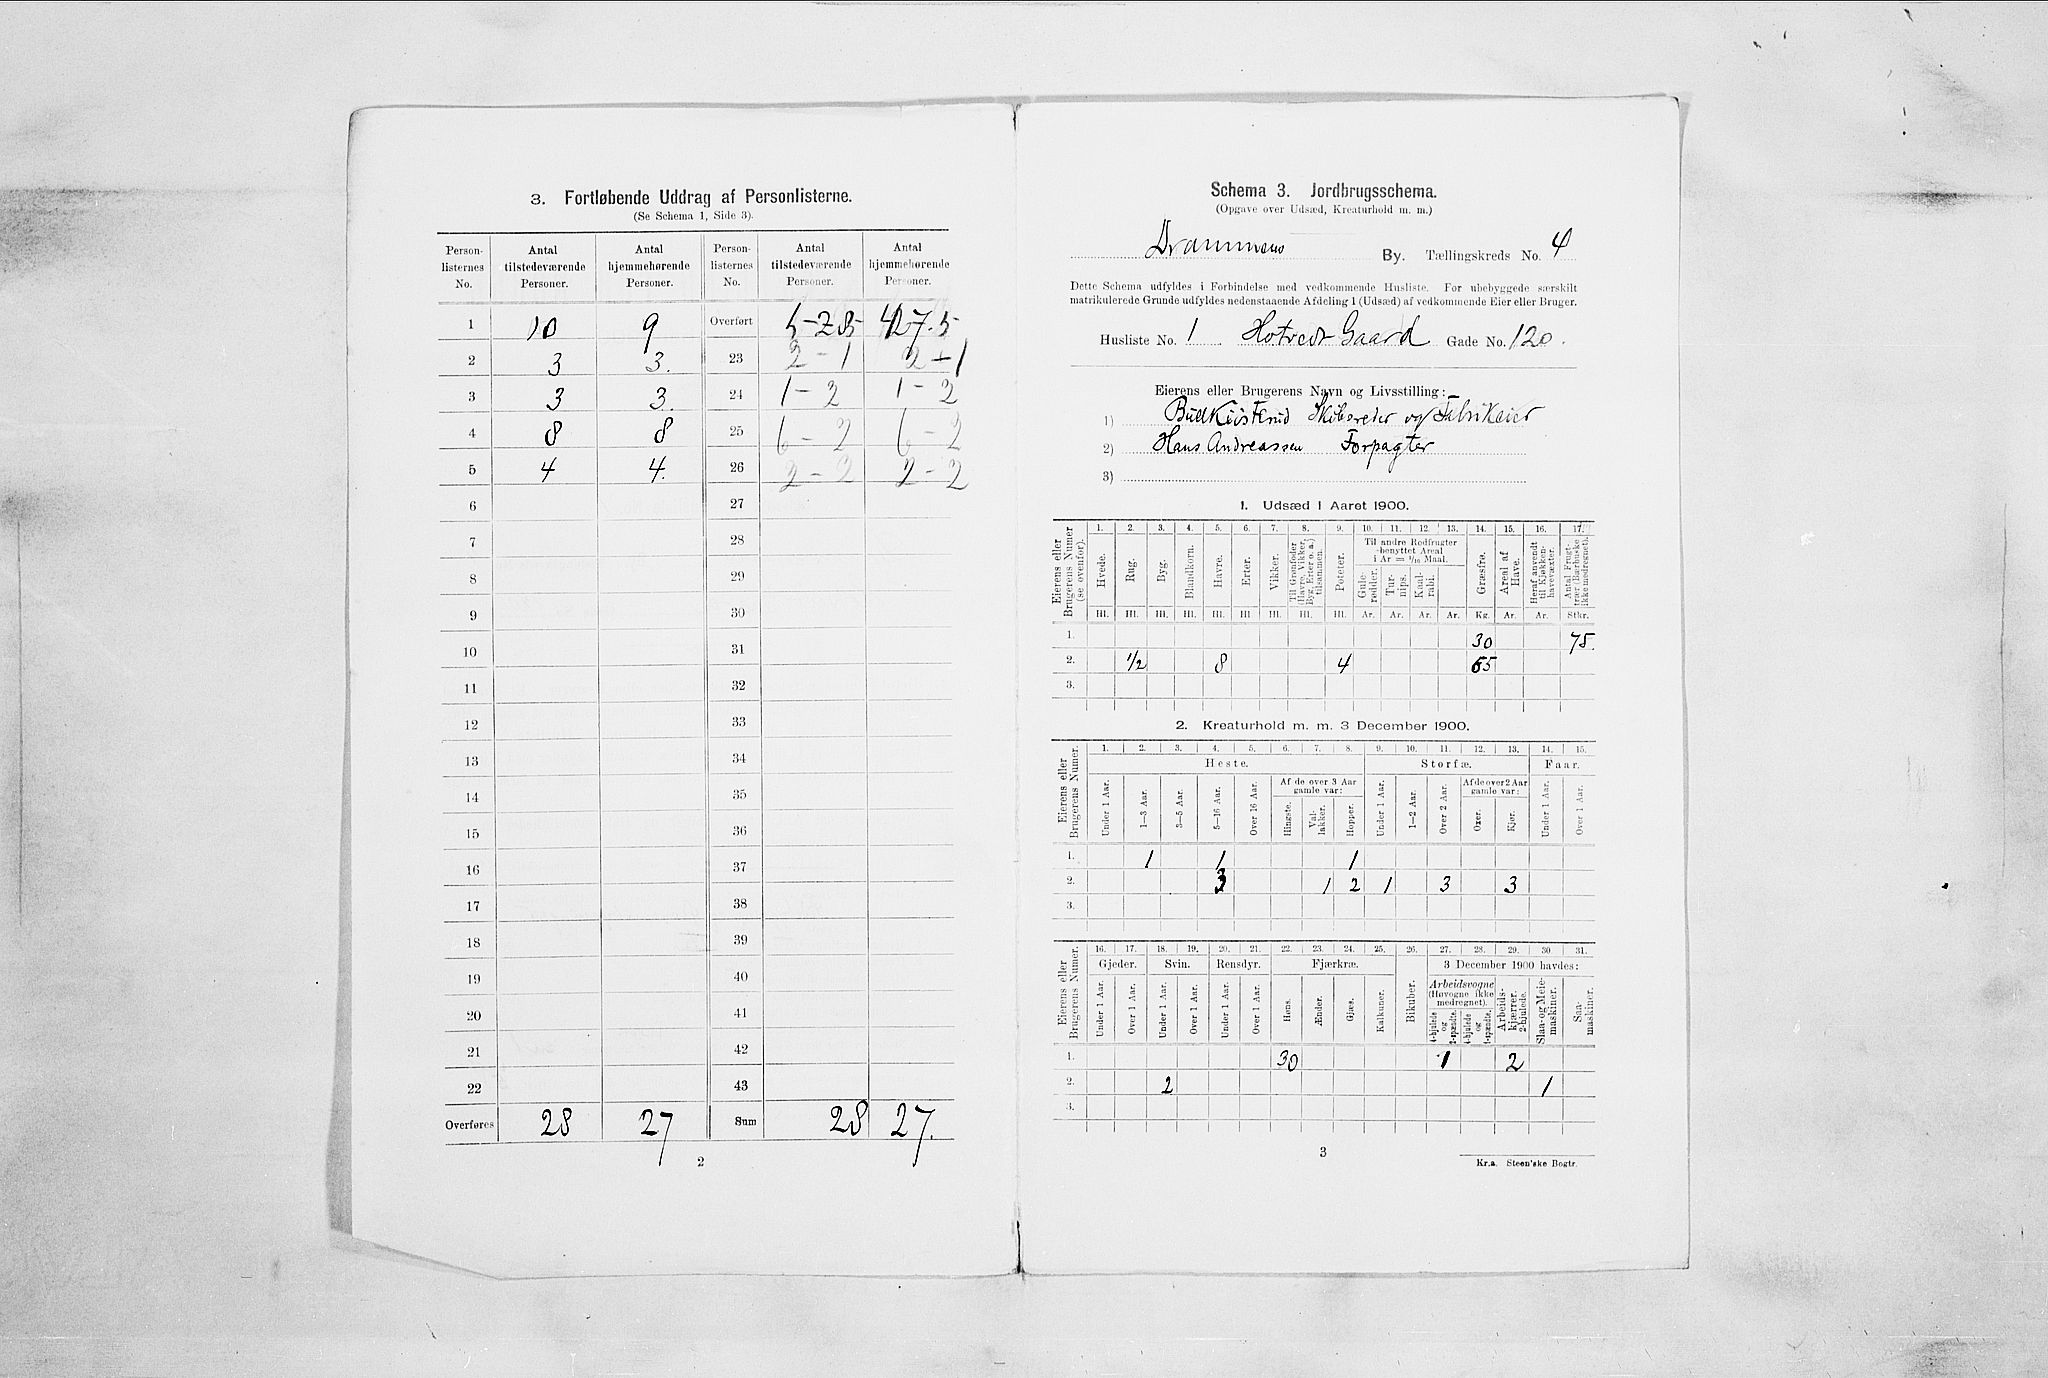 3. Fortløbende Uddrag af Personlisterne.
(Se Schema 1, Side 3).
Person-listernes No. Antal tilstedeværende Personer. Antal hjemmehørende Personer. Person-listernes No. Antal tilstedeværende Personer. Antal hjemmehørende Personer.
1 10 9 Overført 5-28- 27.5
2 3 3. 23 2-1 2-1
3 3 3. 24 1-2 1-2
4 8 8 25 6-2 6-2
5 4 4. 26 2-2 2-2
6 27
7 28
8 29
9 30
10 31
11 32
12 33
13 34
14 35
15 36
16 37
17 38
18 39
19 40
20 41
21 42
22 43
Overføres 28 27 Sum 28 27.
2
Schema 3. Jordbrugsschema.
(Opgave over Udsæd, Kreaturhold m. m.)
Drammens By. Tællingskreds No. 4
Dette Schema udfyldes i Forbindelse med vedkommende Husliste. For ubebyggede særskilt
matrikulerede Grunde udfyldes nedenstaaende Afdeling 1 (Udsæd) af vedkommende Eier eller Bruger.
Husliste No. 1 Hotvedt Gaard Gade No. 120.
Eierens eller Brugerens Navn og Livsstilling:
1) Skibsreder og Fabrikeier
2) Hans Andreassen Forpagter
3)
1. Udsæd i Aaret 1900.
Eierens eller Brugerens Numer (se ovenfor).
1. 2. 3. 4. 5. 6. 7. 8. 9. 10. 11. 12. 13. 14. 15. 16. 17.
Hvede. Rug. Byg. Blandkorn. Havre. Erter. Vikker. Til Grønfoder (Havre, Vikker, Byg, Erter o. a.) tilsammen. Poteter. Til andre Rodfrugter benyttet Areal i Ar = 1/10 Maal. Gule-rødder. Tur-nips. Kaal-rabi. Græsfrø. Areal af Have. Heraf anvendt til Kjøkken-havevæxter. Antal Frugt-trær (Bærbuske ikke medregnet).
Hl. Hl. Hl. Hl. Hl. Hl. Hl. Hl. Hl. Ar. Ar. Ar. Ar. Kg. Ar. Ar. Stkr.
1. 30 75.
2. 1/2 8 4 65
3.
2. Kreaturhold m. m. 3 December 1900.
Eierens eller Brugerens Numer.
1. 2. 3. 4. 5. 6. 7. 8. 9. 10. 11. 12. 13. 14. 15.
Heste. Storfæ. Faar.
Af de over 3 Aar gamle var: Af de over 2 Aar gamle var:
Under 1 Aar. 1—3 Aar. 3—5 Aar. 5—16 Aar. Over 16 Aar. Hingste. Val-lakker. Hopper. Under 1 Aar. 1—2 Aar. Over 2 Aar. Oxer. Kjør. Under 1 Aar. Over 1 Aar.
1. 1 1 1
2. 3 1 2 1 3 3
3.
Eierens eller Brugerens Numer.
16. 17. 18. 19. 20. 21. 22. 23. 24. 25. 26. 27. 28. 29. 30 31.
Gjeder. Svin. Rensdyr. Fjærkræ. Bikuber. 3 December 1900 havdes:
Arbeidsvogne (Høvogne ikke medregnet).
Under 1 Aar. Over 1 Aar. Under 1 Aar. Over 1 Aar. Under 1 Aar. Over 1 Aar. Høns. Ænder. Gjæs. Kalkuner. 4-hjulede og 2-spændte. 4-hjulede og 1-spændte. Arbeids-kjærrer. 2-hjulede. Slaa- og Meie-maskiner. Saa-maskiner.
1. 30 1 2
2. 2 1
3.
3
Kr.a. Steen'ske Bogtr.